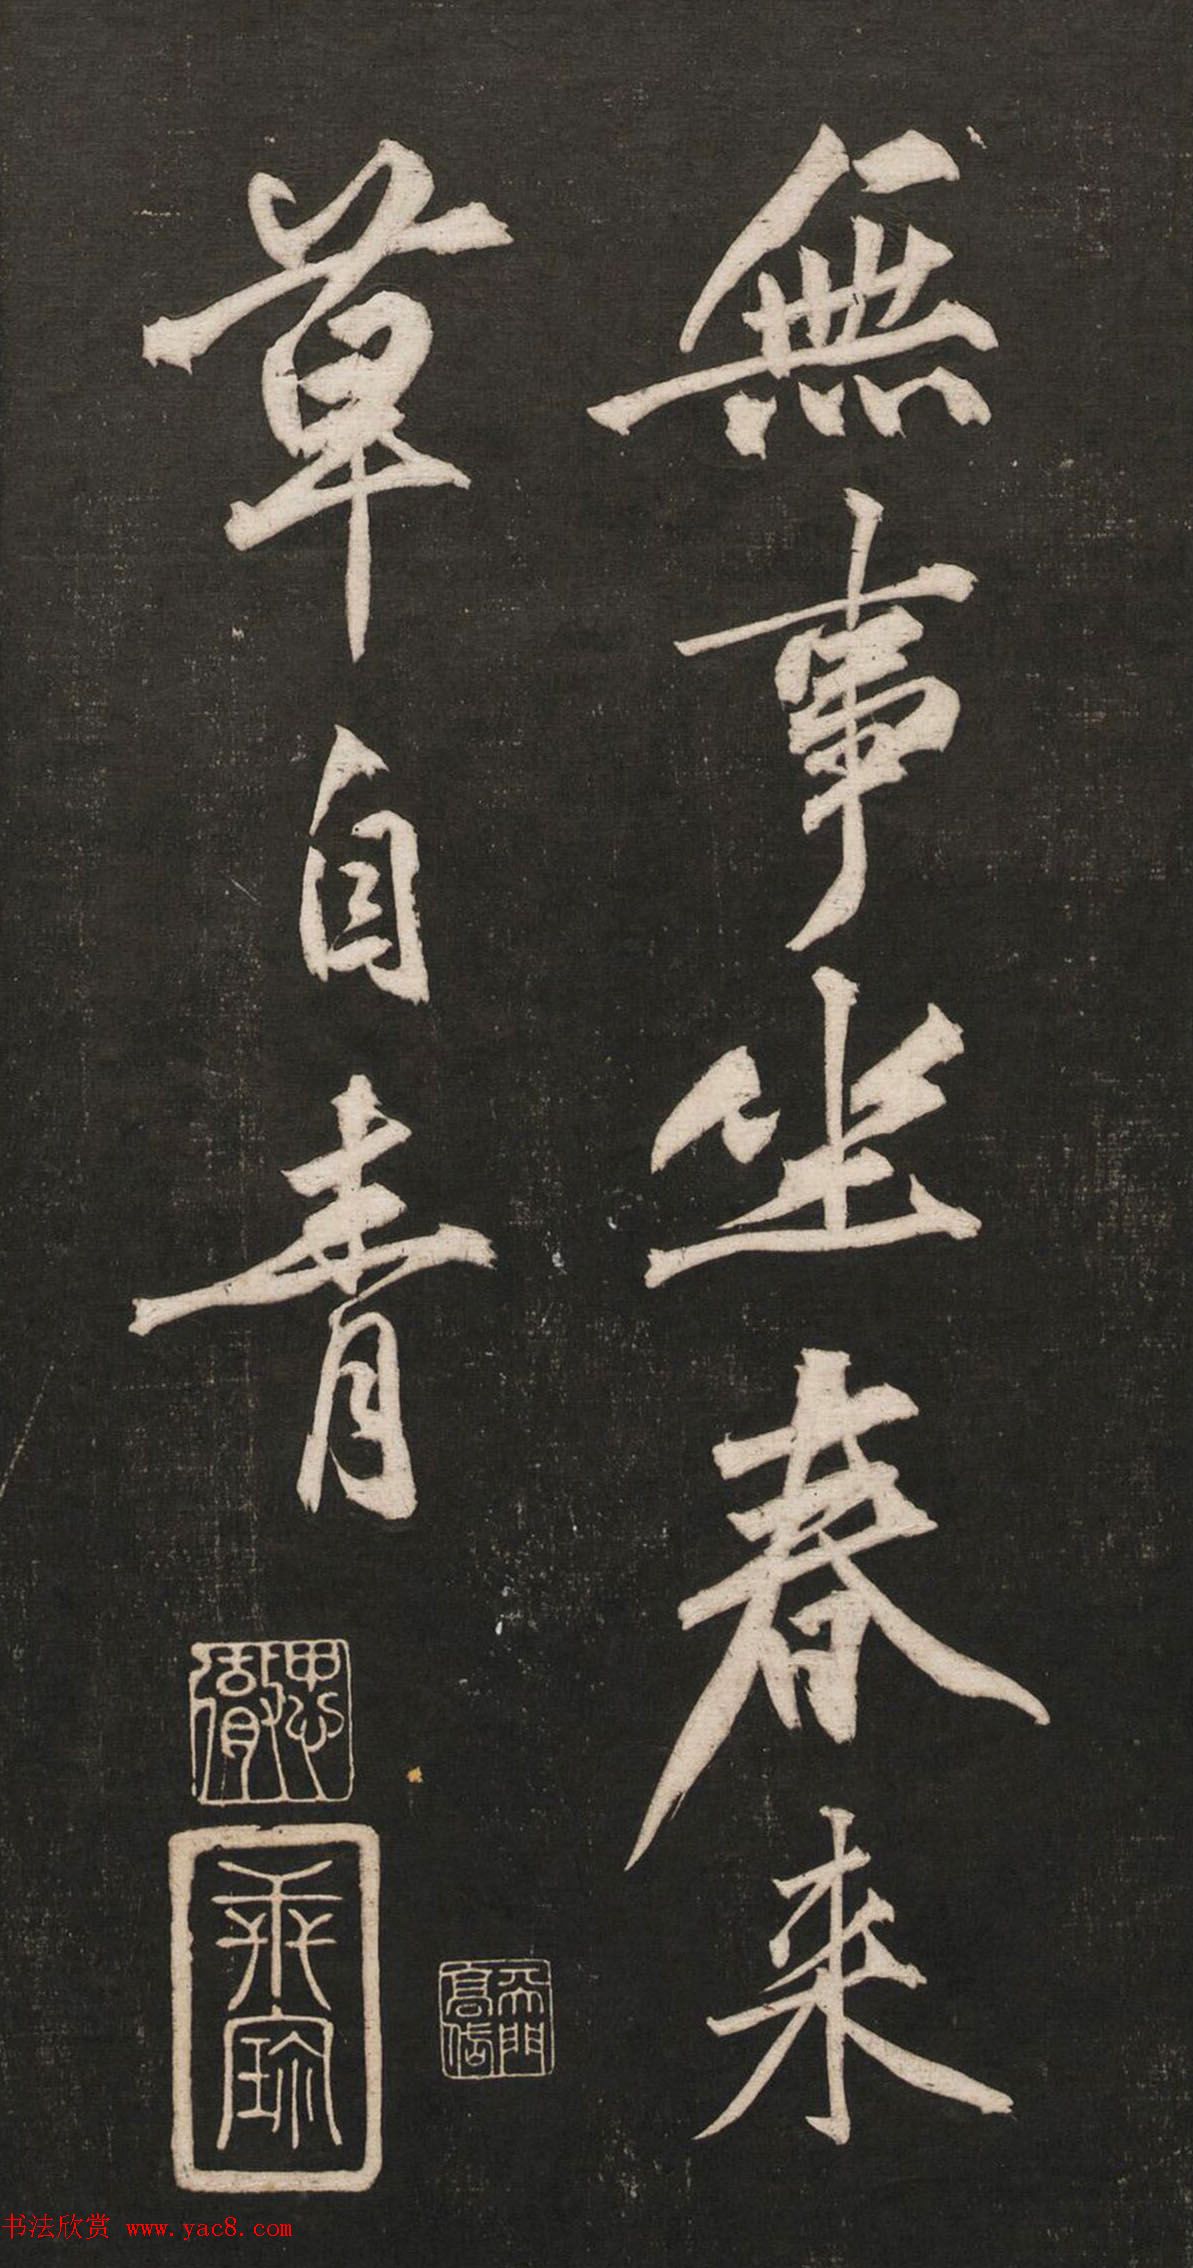 無事坐春来
草自青
思徹
乘琛
书法欣赏 www.yac8.com